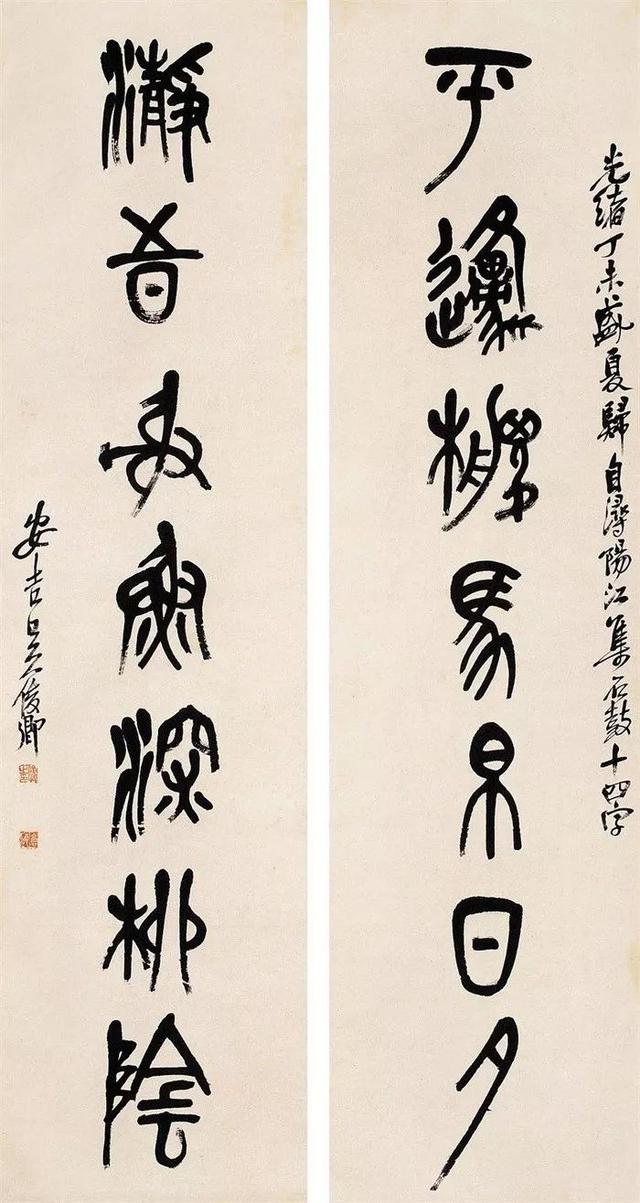 光緒丁未盛夏歸自潯陽江集石鼓十四字
平邍馬日夕
瀞深柳陰
安吉吳俊卿